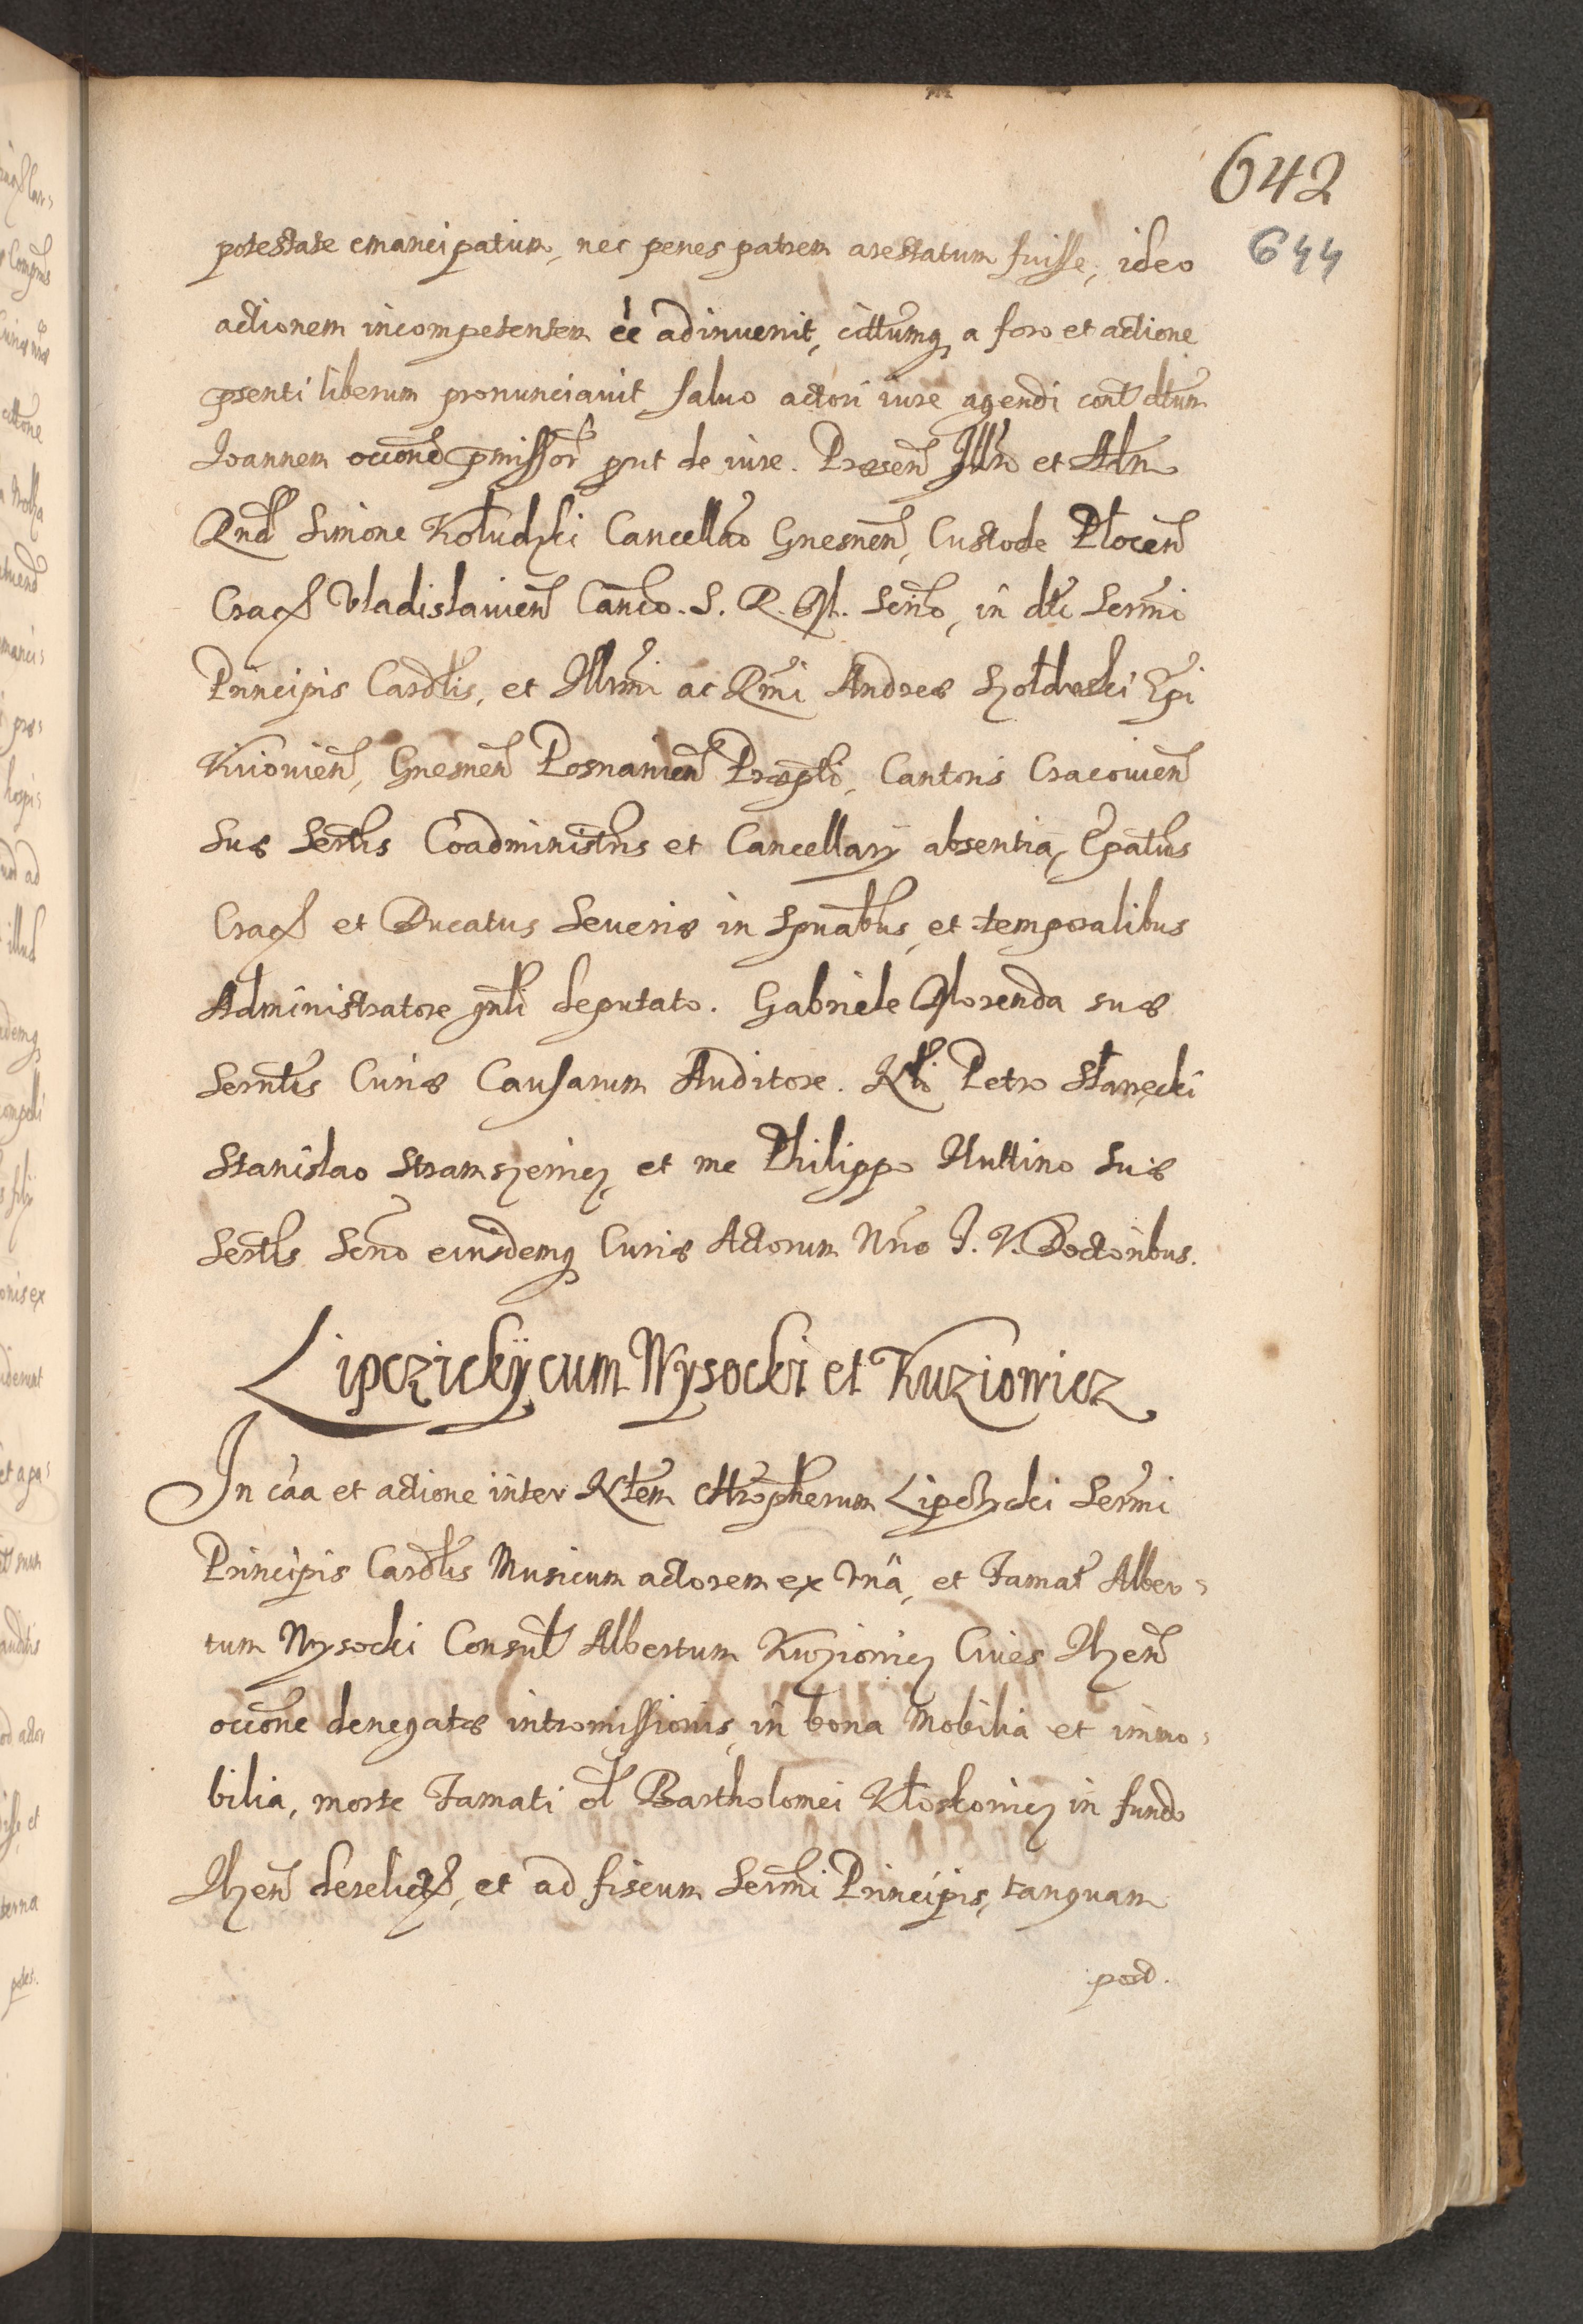 642
644
potestate emancipatum, nec penes patrem arestatum fuisse, ideo
actionem incompetentem ee adinuenit, cittumq a foro et actione
psenti liberum pronunciauit saluo actori iure agendi cont dtum
Joannem occone pmissor put de iure. Præsen Illri et Adm
Rnd Simone Kołudzki Cancellrio Gnesnen, Custode Płocen
Crac Vladislauien Canco. S. R. M. Secrio, in dti Sermi
Principis Cardlis, et Illrmi ac Rmi Andreæ Szołdrski Epi
Kiiouien, Gnesnen Posnanien Præpti, Cantoris Cracouien
Suæ Sertis Coadministris et Cancellarij absentia, Epatus
Crac et Ducatus Seueriæ in spuabus, et temporalibus
Administratore gnli deputato. Gabriele Morenda suæ
Serntis Curiæ Causarum Auditore. Rdi Petro Skarecki
Stanislao Stramszewicz, et me Philippo Huttino Suæ
Sertis Secrio eiusdemq Curiæ Actorum Nrio J. V. Doctoribus.
Lipczickÿ cum Wysocki et Kuziowicz
In caa et actione inter Rdem Chropherum Lipczycki Sermi
Principis Cardlis Musicum actorem ex vna, et Famat Alber=
tum Wysocki Consul Albertum Kuziowicz Ciues Ilzen
occone denegatæ intromissionis, in bona Mobilia et immo=
bilia, morte Famati ol Bartholomei Kłoskowicz in fundo
Ilzen derelict, et ad fiscum Sermi Principis, tanquam
post.